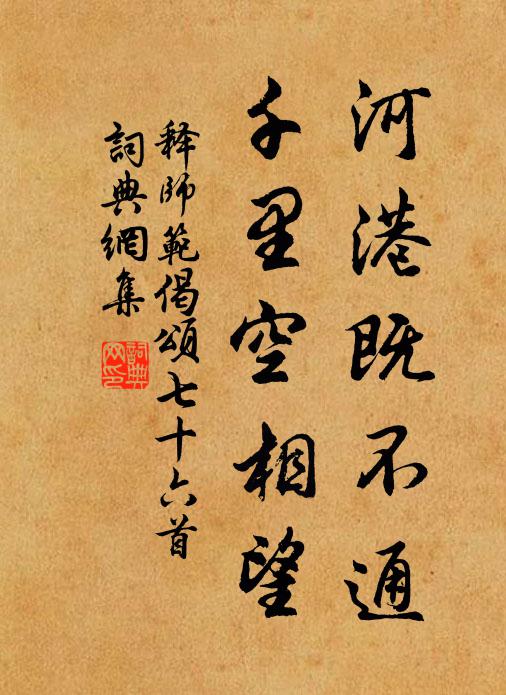 河港既不通
千里空相望
释師範偈頌七十六首
詞典網集
詞典网印